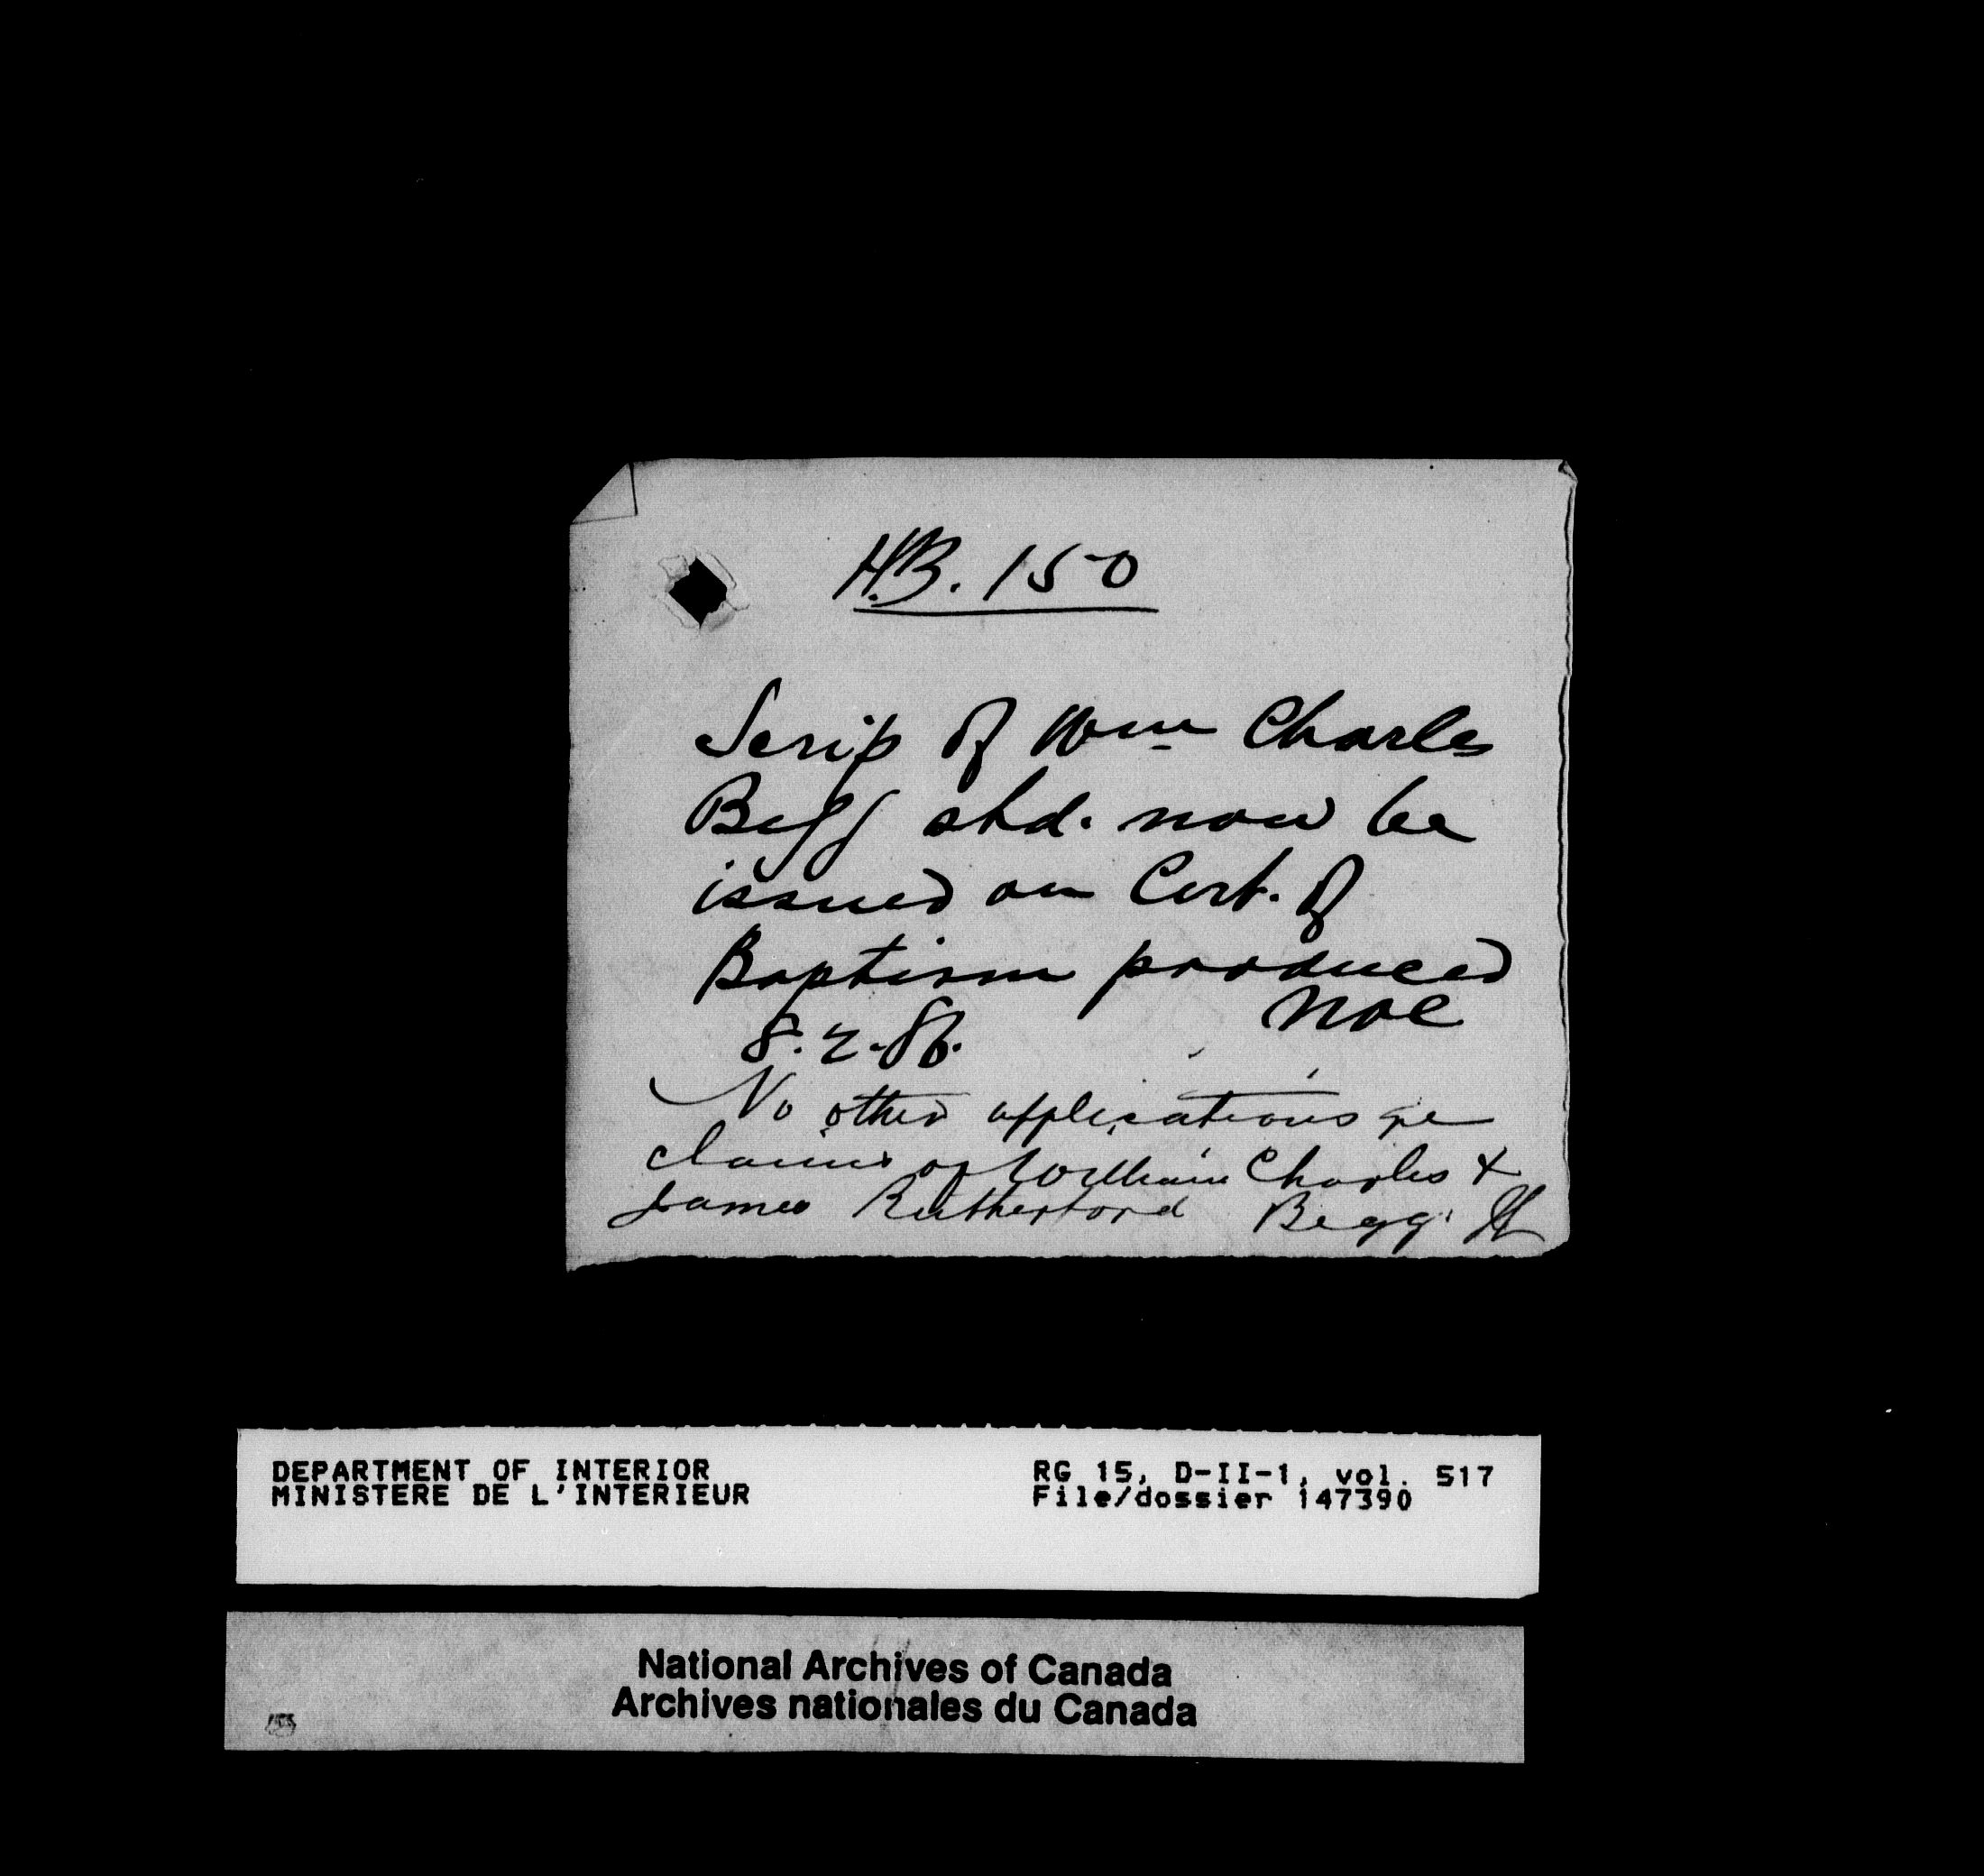 H.B. 150
Scrip of Wm Charles
Begg shd. now be
issued on Cert. of
Baptism produced
8.2.86.
No other applications re
claims of William Charles &
James Rutherford Begg.
DEPARTMENT OF INTERIOR
MINISTERE DE L'INTERIEUR
RG 15, D-II-1, vol. 517
File/dossier 147390
National Archives of Canada
Archives nationales du Canada